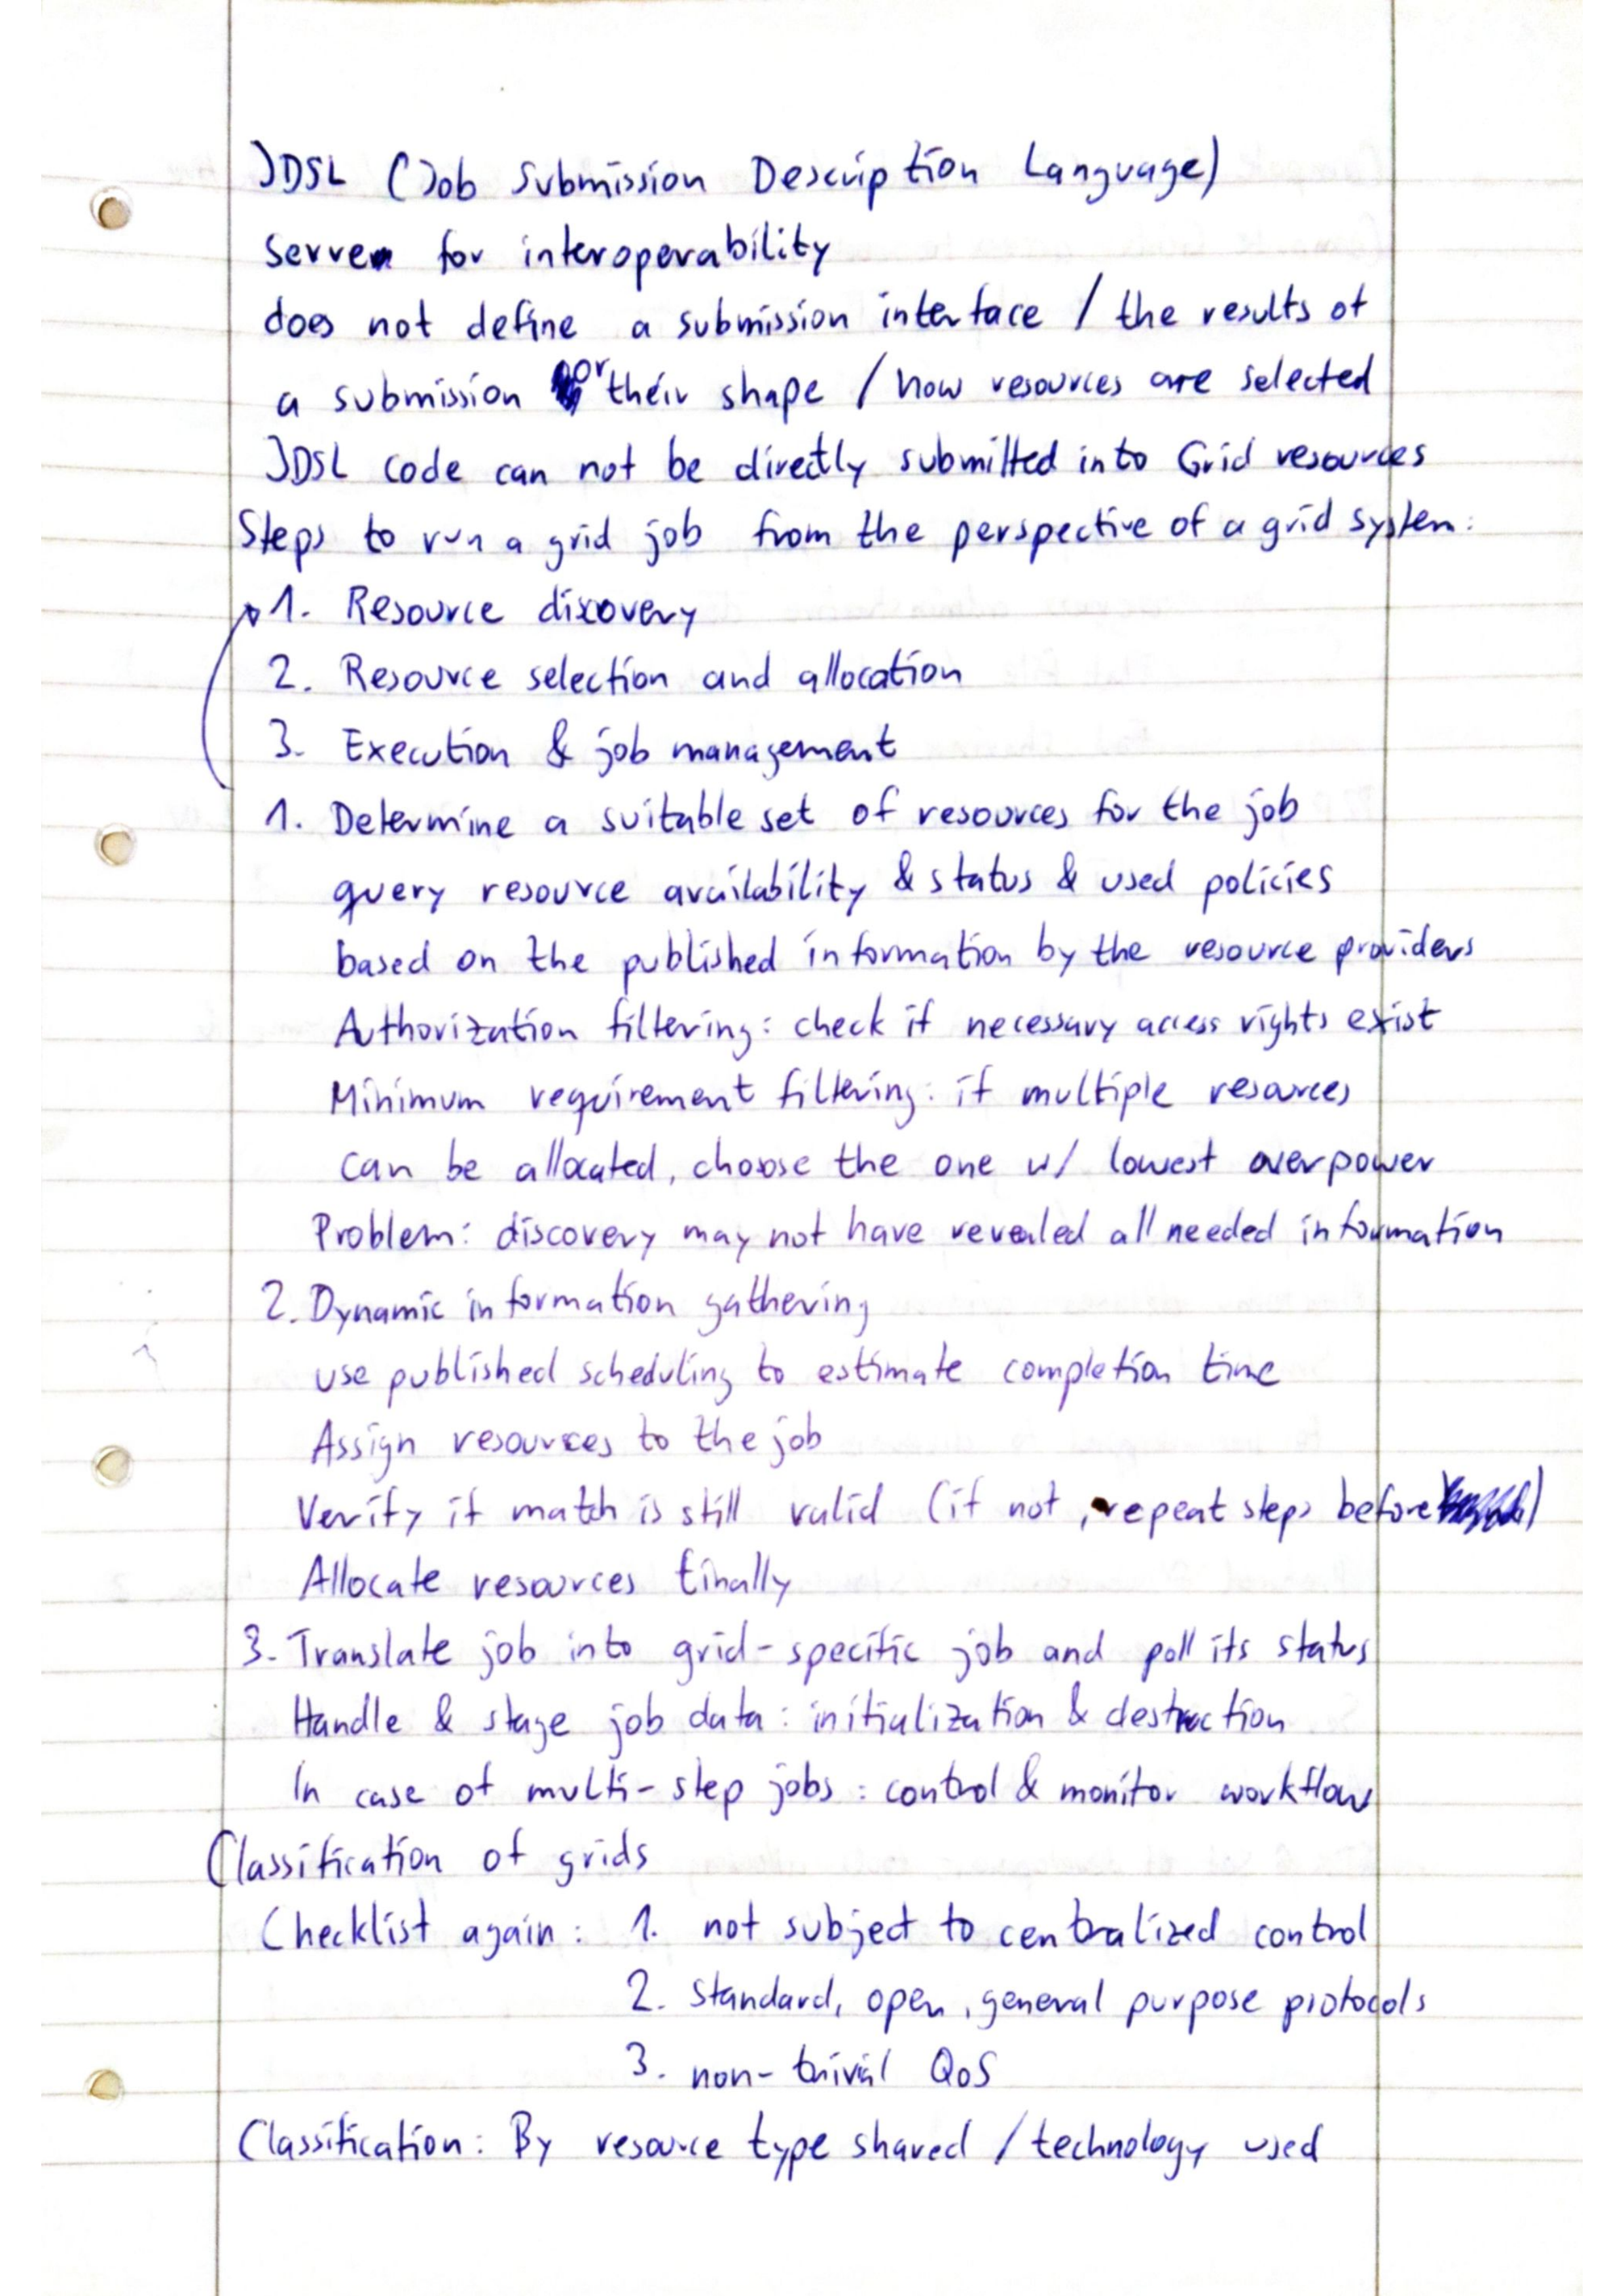 JDSL (Job Submission Description Language)
serves for interoperability
does not define a submission interface / the results of
a submission or their shape / how resources are selected
JDSL code can not be directly submitted into Grid resources
Steps to run a grid job from the perspective of a grid system:
1. Resource discovery
2. Resource selection and allocation
3. Execution & job management
1. Determine a suitable set of resources for the job
query resource availability & status & used policies
based on the published information by the resource providers
Authorization filtering: check if necessary access rights exist
Minimum requirement filtering: if multiple resources
can be allocated, choose the one w/ lowest overpower
Problem: discovery may not have revealed all needed information
2. Dynamic information gathering
use published scheduling to estimate completion time
Assign resources to the job
Verify if match is still valid (if not, repeat steps before)
Allocate resources finally
3. Translate job into grid-specific job and poll its status
Handle & stage job data: initialization & destruction
In case of multi-step jobs: control & monitor workflow
Classification of grids
Checklist again: 1. not subject to centralized control
2. standard, open, general purpose protocols
3. non-trivial QoS
Classification: By resource type shared / technology used